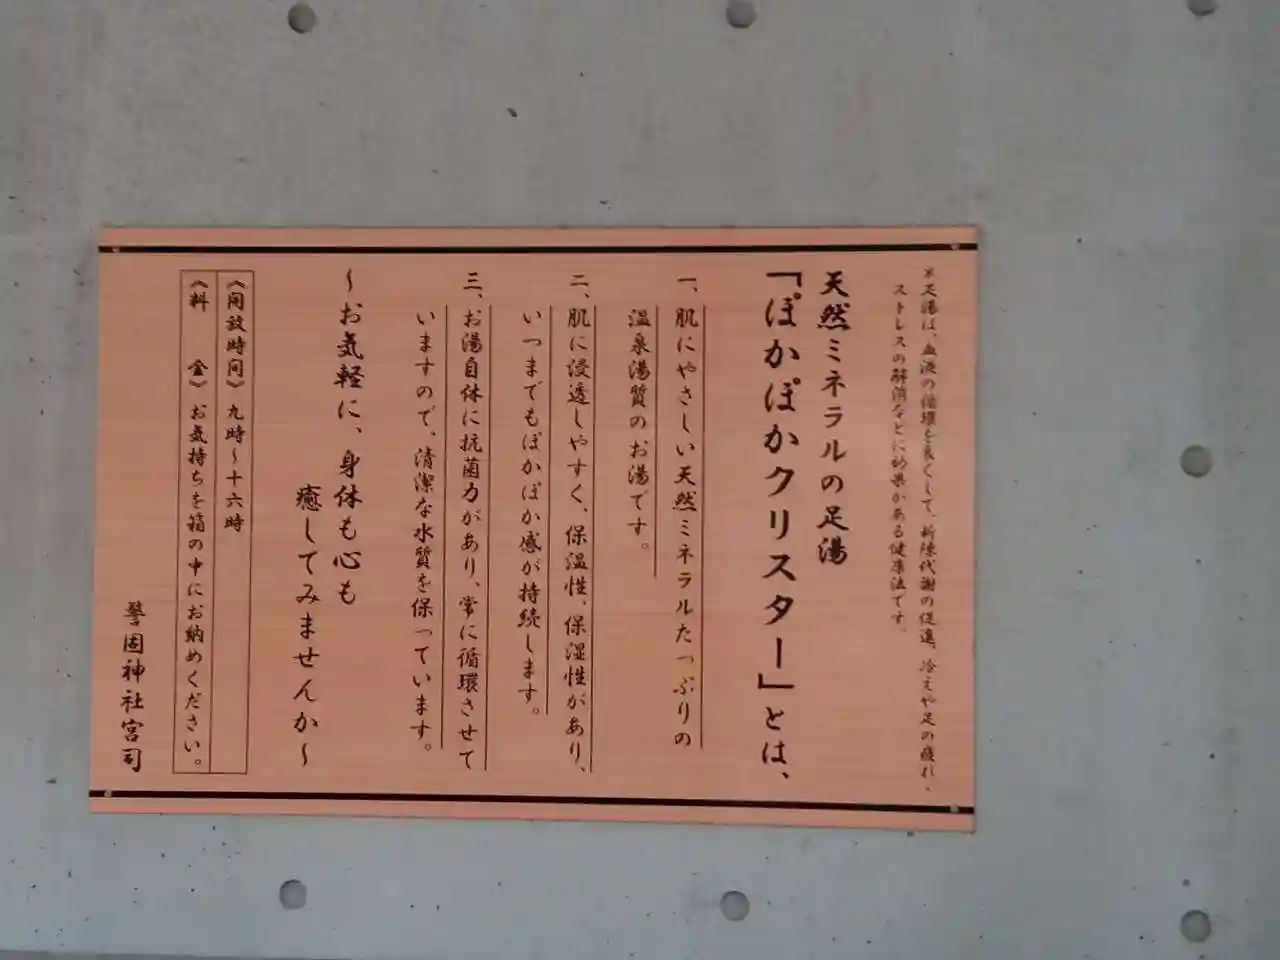 ※足湯は、血液の循環を良くして、新陳代謝の促進、冷えや足の疲れ、
ストレスの解消などに効果がある健康法です。
天然ミネラルの足湯
「ぽかぽかクリスター」とは、
一、肌にやさしい天然ミネラルたっぷりの
温泉湯質のお湯です。
二、肌に浸透しやすく、保温性、保湿性があり、
いつまでもぽかぽか感が持続します。
三、お湯自体に抗菌力があり、常に循環させて
いますので、清潔な水質を保っています。
～お気軽に、身体も心も
癒してみませんか～
《開放時間》九時～十六時
《料　金》お気持ちを箱の中にお納めください。
警固神社宮司